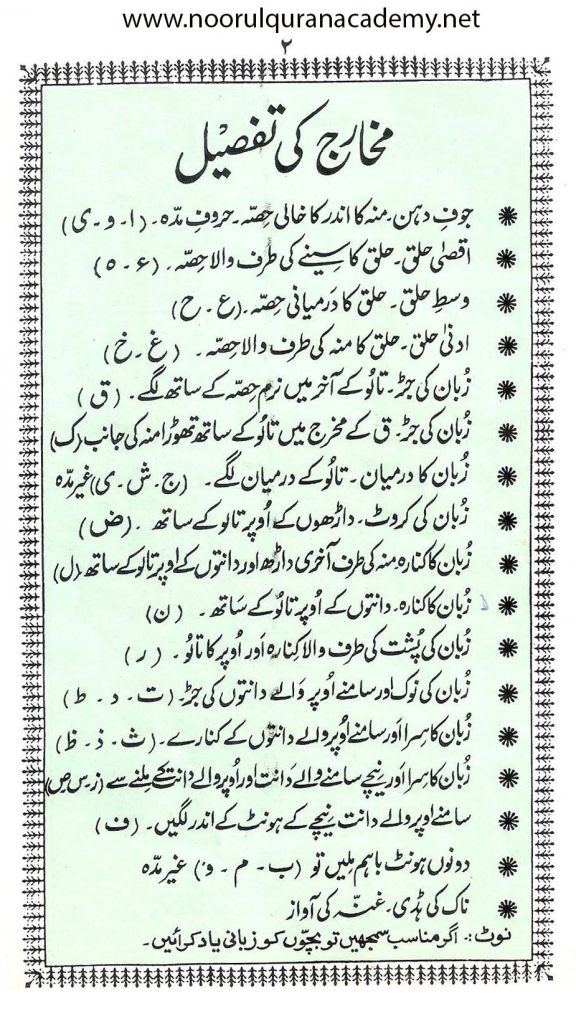 www.noorulquranacademy.net
۲
مخارج کی تفصیل
جوفِ دہن۔ منہ کا اندر کا خالی حِصّہ۔ حروفِ مدّہ۔ (ا۔ و۔ ی)
اقصٰی حلق۔ حلق کا سِینے کی طرف والا حِصّہ۔ (ء۔ ہ)
وسطِ حلق۔ حلق کا دَرمیانی حِصّہ۔ (ع۔ ح)
ادنیٰ حلق۔ حلق کا منہ کی طرف والا حِصّہ۔ (غ۔ خ)
زُبان کی جَڑ۔ تالُو کے آخر میں نرم حِصّہ کے ساتھ لگے۔ (ق)
زُبان کی جَڑ۔ ق کے مخرج میں تالُو کے ساتھ تھوڑا منہ کی جانب (ک)
زُبان کا درمیان۔ تالُو کے درمیان لگے۔ (ج۔ ش۔ ی) غیر مدّہ
زُبان کی کروٹ۔ داڑھوں کے اُوپر تالو کے ساتھ۔ (ض)
زُبان کا کنارہ۔ منہ کی طرف آخری داڑھ اور دانتوں کے اوپر تالو کے ساتھ۔ (ل)
زُبان کا کنارہ۔ دانتوں کے اُوپر تالُو کے سَاتھ۔ (ن)
زُبان کی پُشت کی طرف والا کِنارہ اَور اُوپر کا تالُو۔ (ر)
زُبان کی نوک اور سامنے اُوپر وَالے دانتوں کی جَڑ۔ (ت۔ د۔ ط)
زُبان کا سِرا اَور سامنے اُوپر والے دانتوں کے کنارے۔ (ث۔ ذ۔ ظ)
زُبان کا سِرا اَور نِیچے سامنے والے دَانت اور اُوپر والے دانت کے مِلنے سے (ز۔س۔ص)
سامنے اوپر والے دانت نِیچے کے ہونٹ کے اندر لگیں۔ (ف)
دونوں ہونٹ باہم مِلیں تو (ب۔ م۔ و) غیر مدّہ
ناک کی ہڈی۔ غنّہ کی آواز
نوٹ:۔ اگر مناسب سمجھیں تو بچّوں کو زبانی یاد کرائیں۔